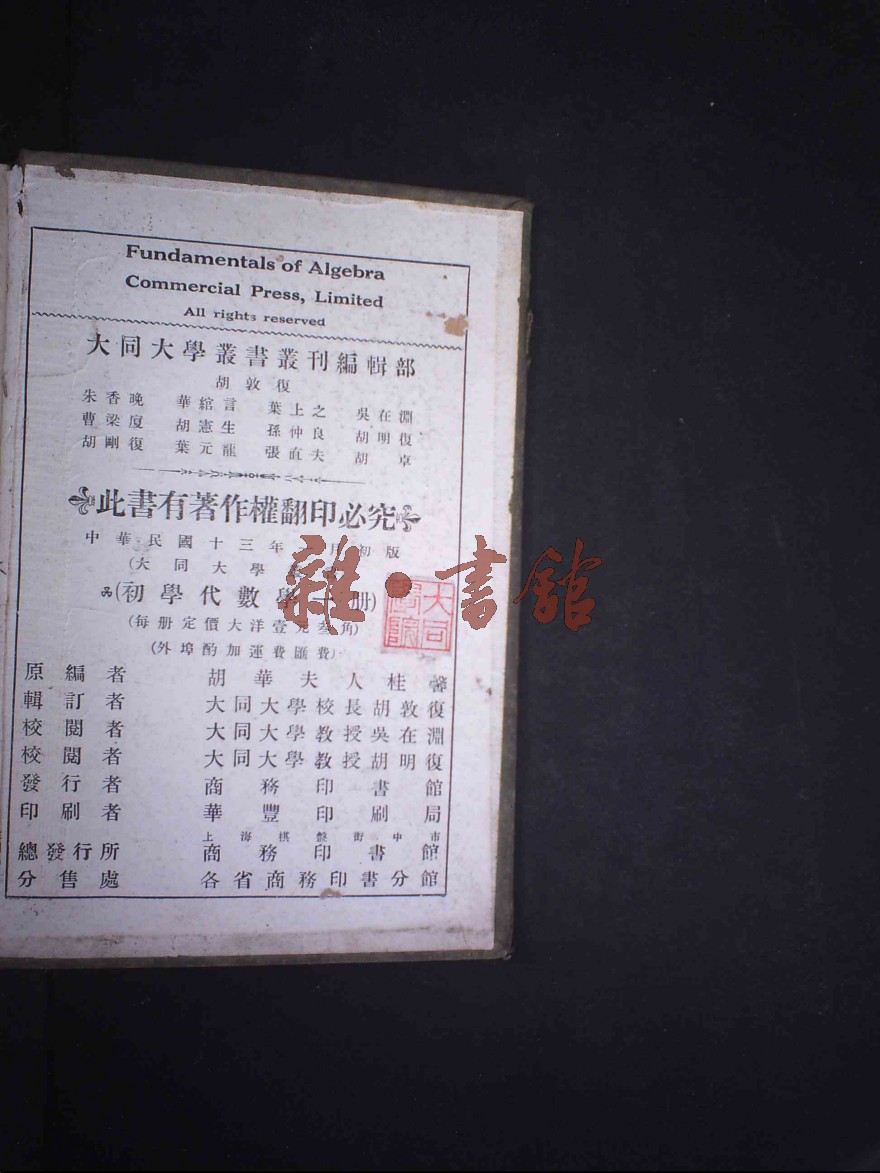 Fundamentals of Algebra
Commercial Press, Limited
All rights reserved
大同大學叢書叢刊編輯部
胡敦復
朱香晚 華綰言 葉上之 吳在淵
曹梁廈 胡憲生 孫仲良 胡明復
胡剛復 葉元龍 張直夫 胡卓
此書有著作權翻印必究
中華民國十三年 月初版
(大同大學
(初學代數學一册)
(每册定價大洋壹元叁角)
(外埠酌加運費匯費)
原編者 胡華夫人桂馨
輯訂者 大同大學校長胡敦復
校閱者 大同大學教授吳在淵
校閱者 大同大學教授胡明復
發行者 商務印書館
印刷者 華豐印刷局
上海棋盤街中市
總發行所 商務印書館
分售處 各省商務印書分館
雜·書館
大同